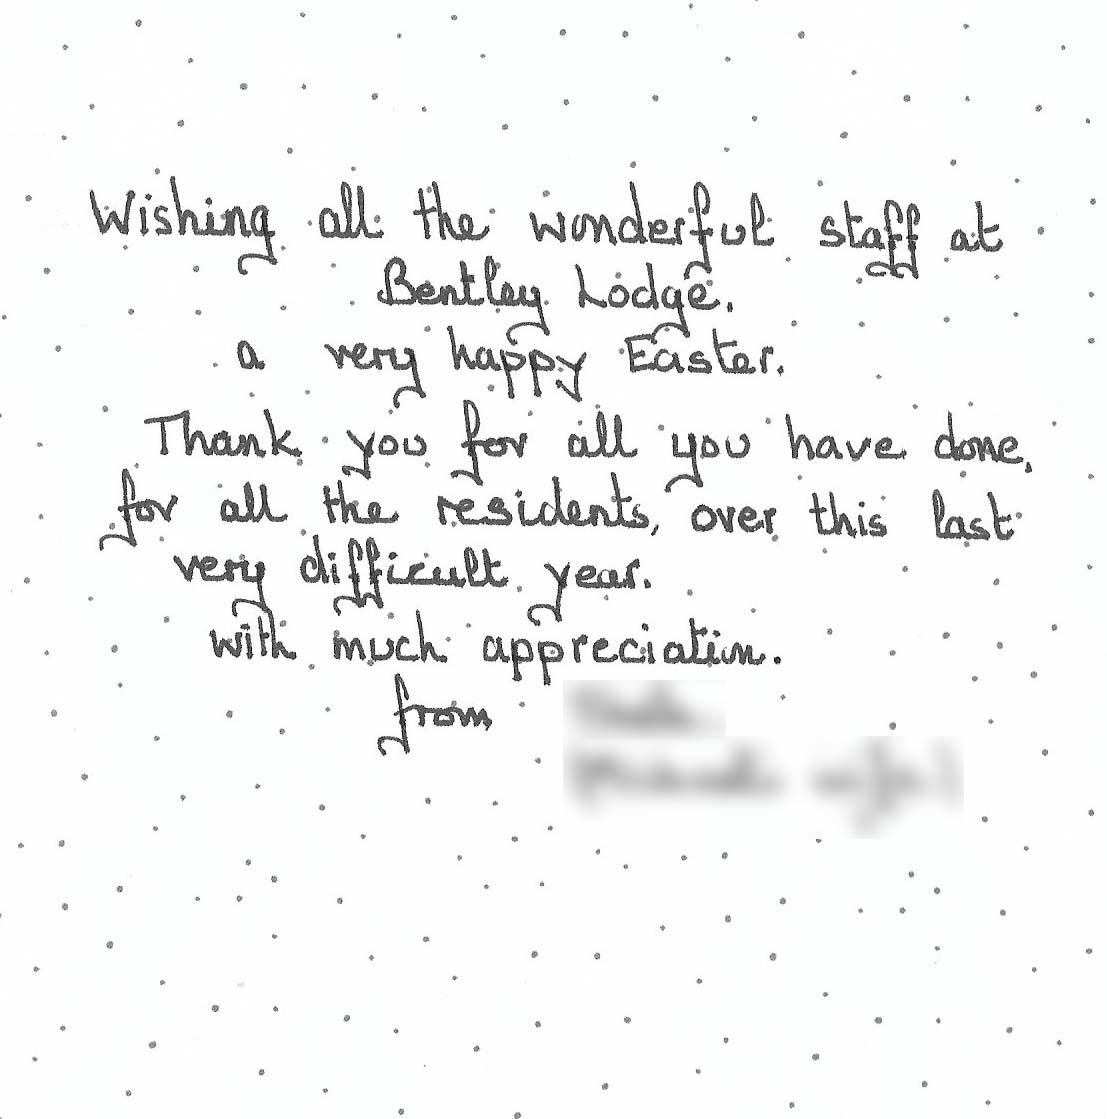 Wishing all the wonderful staff at
Bentley Lodge.
a very happy Easter.
Thank you for all you have done,
for all the residents, over this last
very difficult year.
with much appreciation.
from